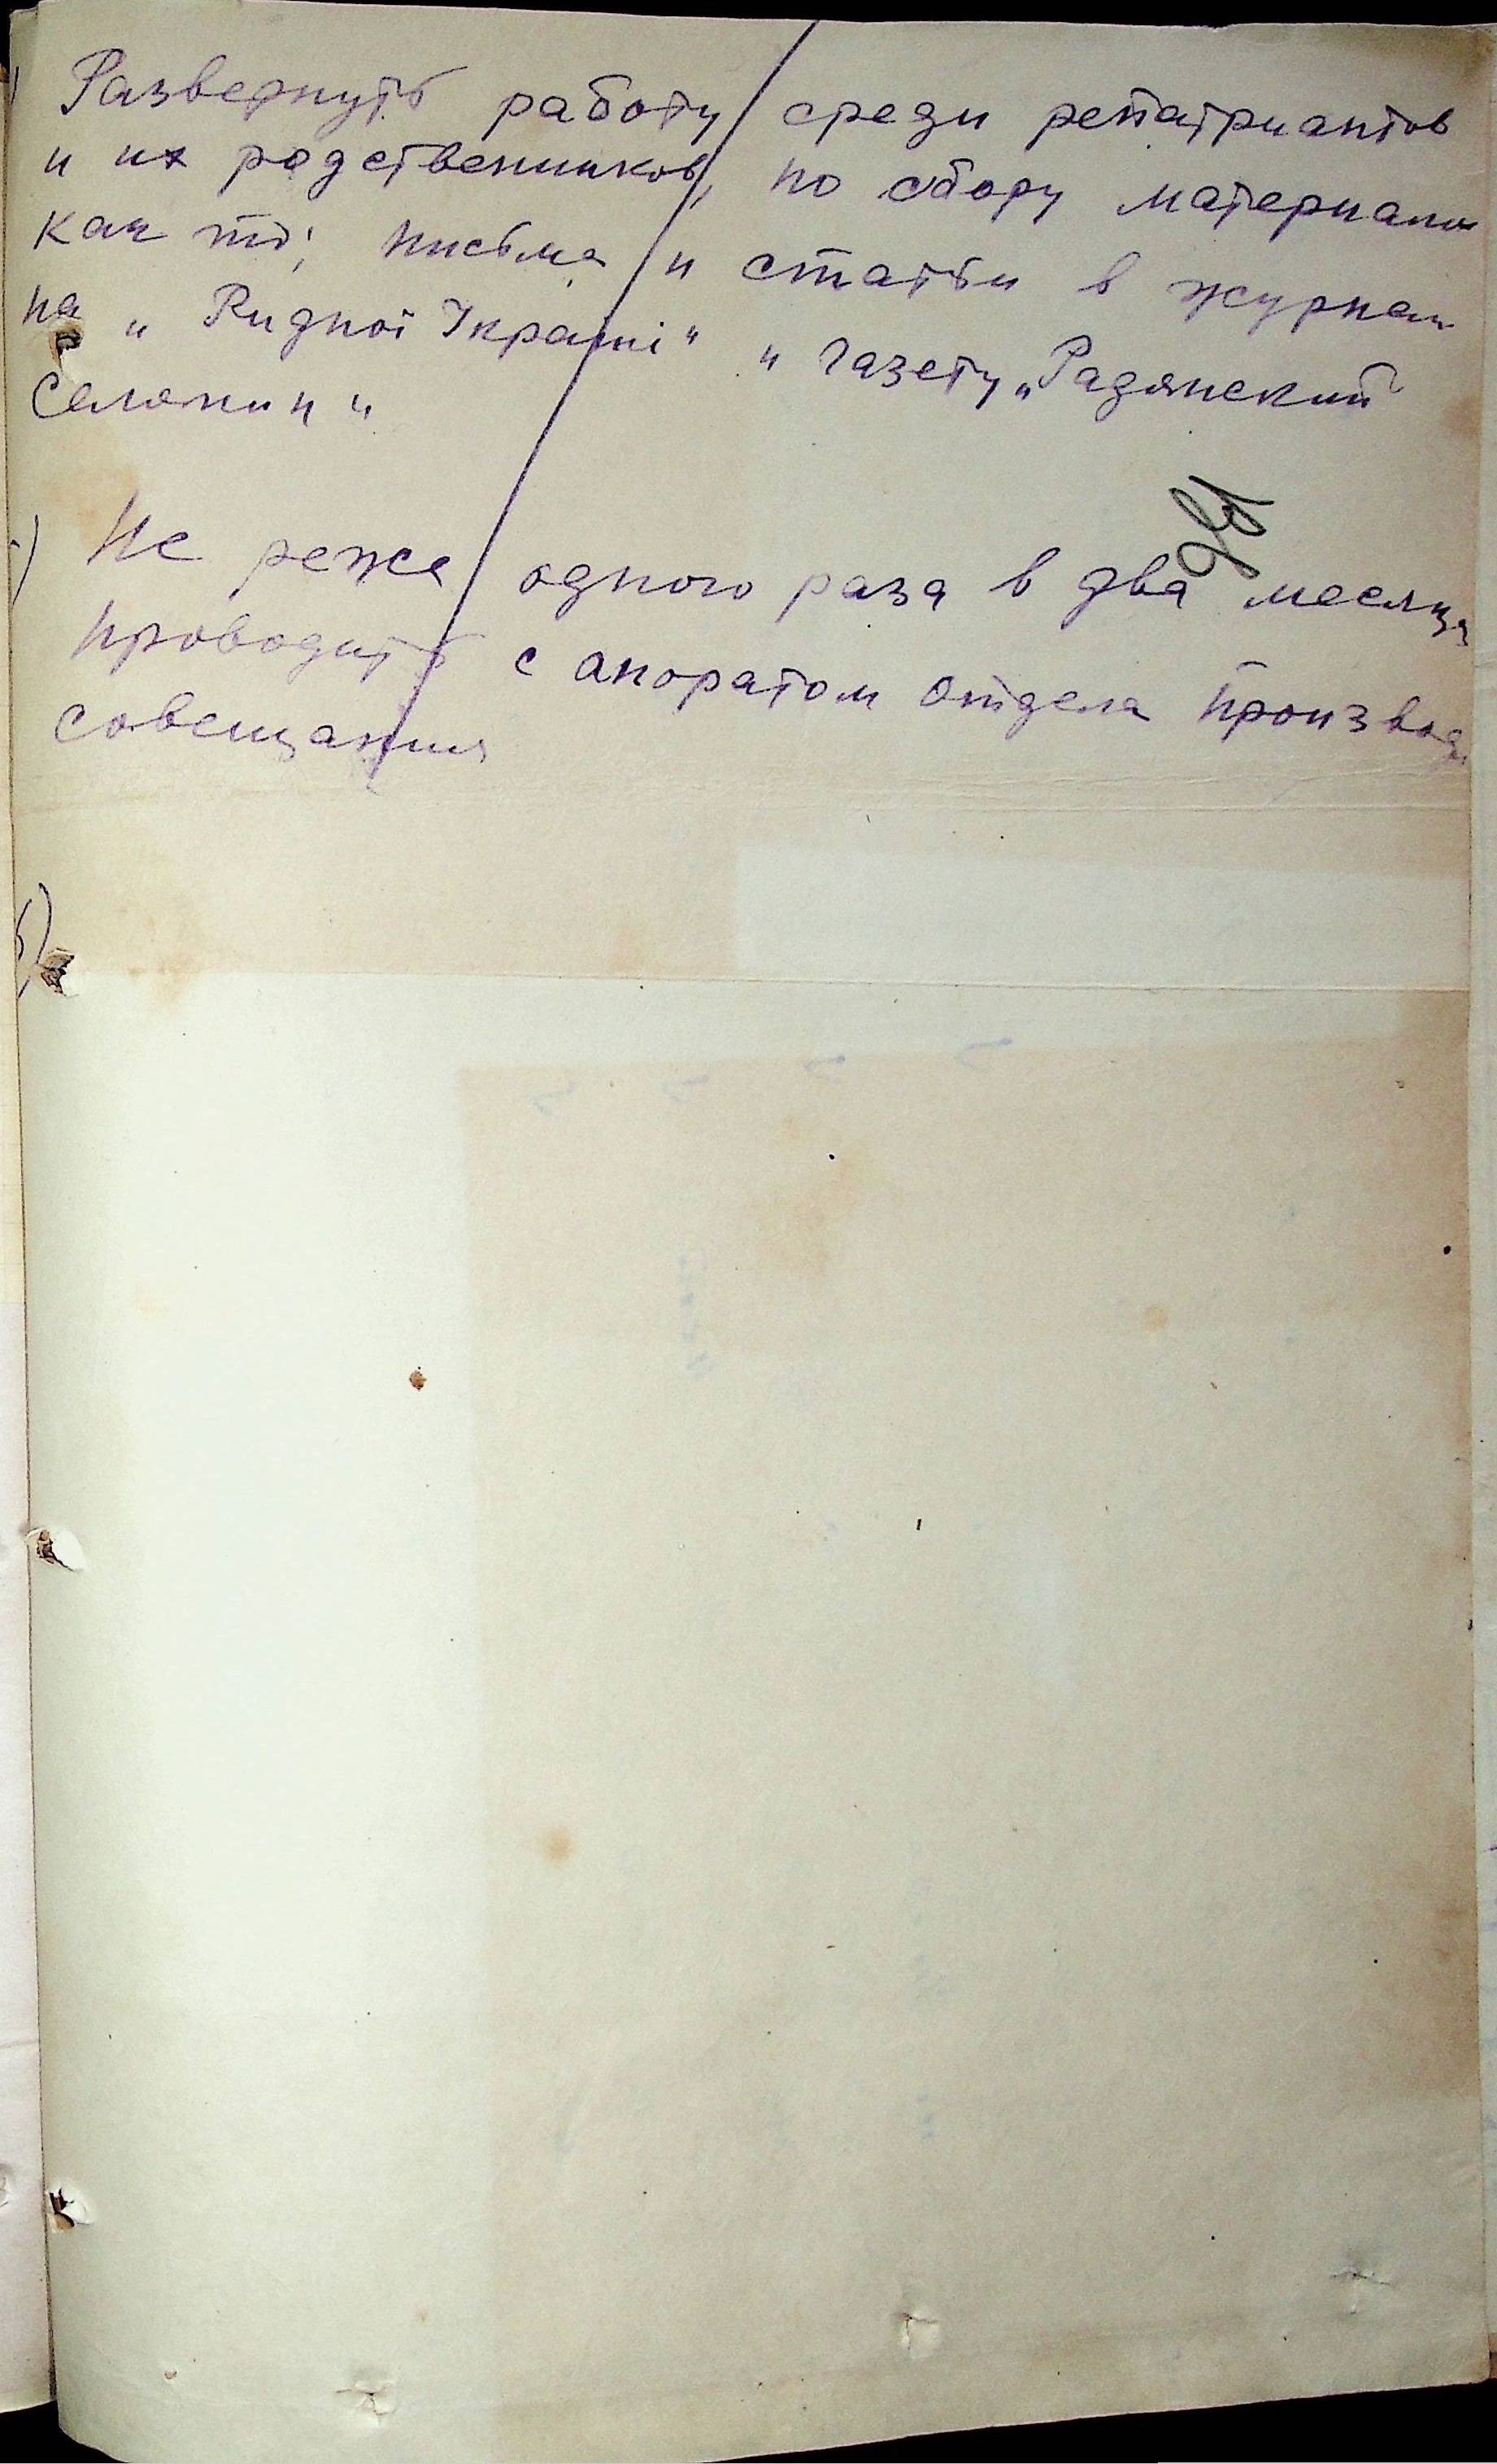 ) Развернуть работу среди репатриантов
и их родственников, по сбору материалов
как то; письма и статьи в журнал
на "Ридної Україні" и газету "Радянский
Селянин"
) Не реже одного раза в два месяца
проводить с апоратом отдела производ
совещания